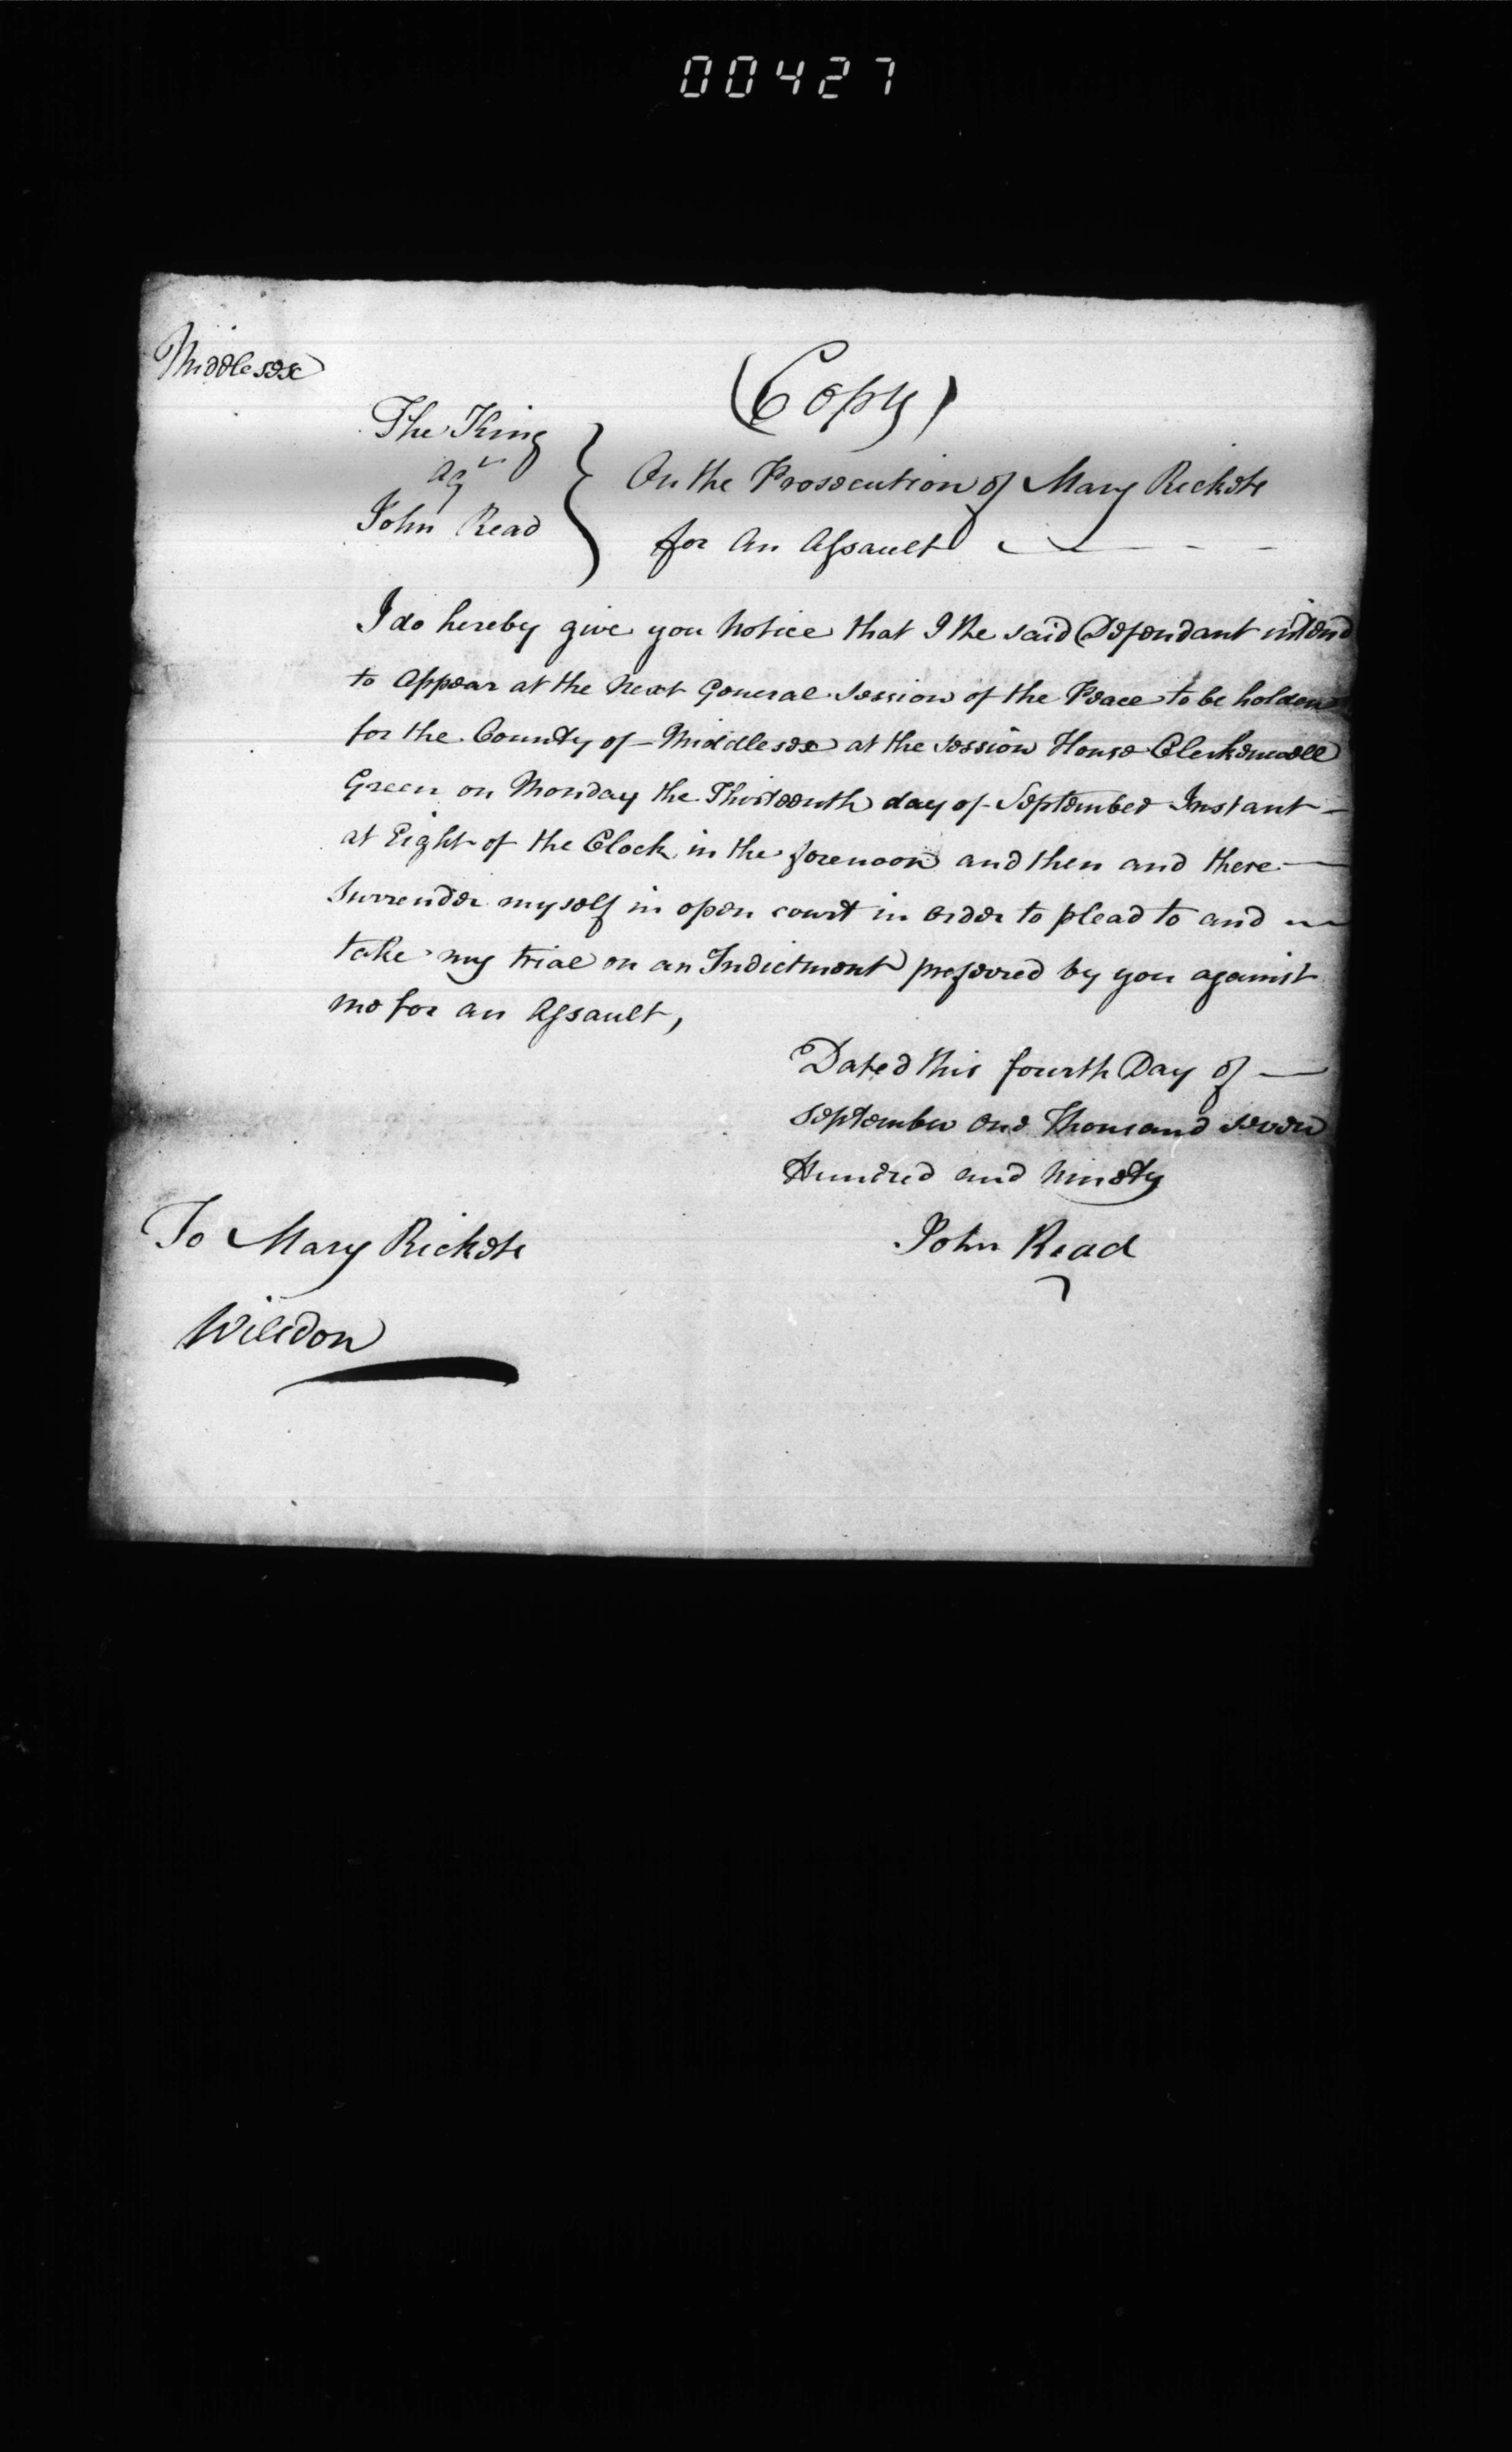 00427
Middlesex
(Copy)
The King
agt
John Read
On the Prosecution of Mary Rickets
for An Assault
I do hereby give you Notice that I the said Defendant intend
to Appear at the Next General Session of the Peace to be holden
for the County of Middlesex at the Session House Clerkenwell
Green on Monday the Thirteenth day of September Instant
at Eight of the Clock in the forenoon and then and there
Surrender myself in open court in order to plead to and
take my trial on an Indictment prefered by you against
me for an Assault,
Dated this fourth Day of
September One Thousand seven
Hundred and Ninety
John Read
To Mary Rickets
Wilsdon